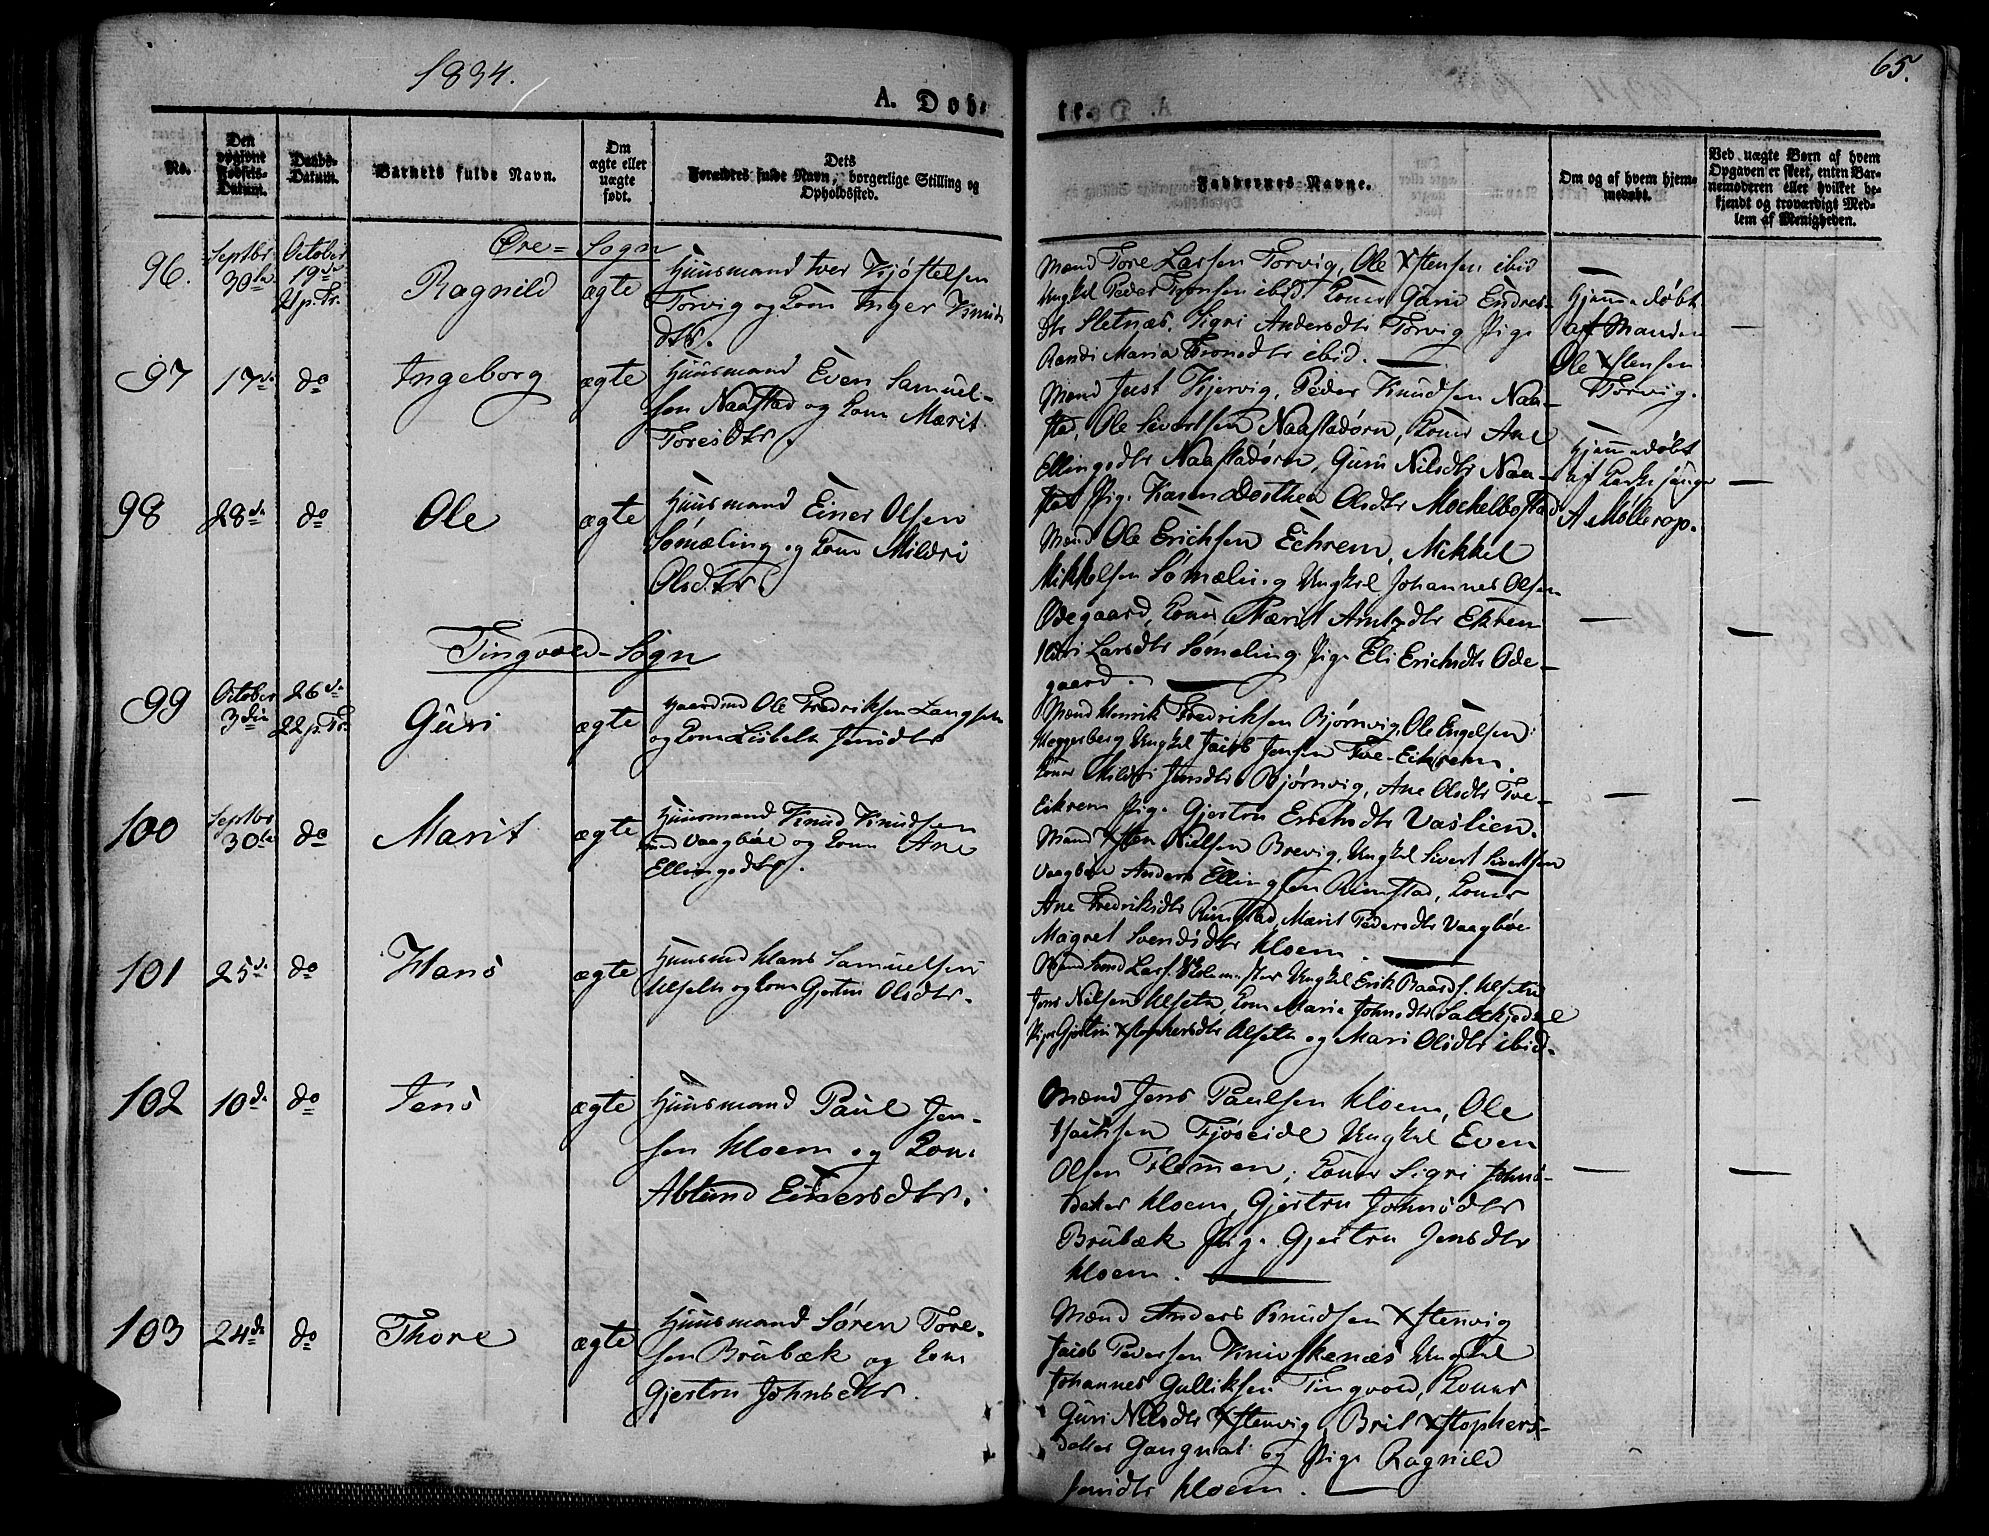 1834.
65.
A. Døb-
te.
No.
Den opgivne Fødsels-Datum.
Daabs-Datum.
Barnets fulde Navn.
Om ægte eller uægte født.
Dets Forældres fulde Navn, borgerlige Stilling og Opholdssted.
Faddernes Navne.
Om og af hvem hjemmedøbt.
Ved uægte Børn af hvem
Opgaven er skeet, enten Bar-
nemoderen eller hvilket be-
kjendt og troværdigt Med-
lem af Menigheden.
Øre-Sogn
96.
Septbr 30te
October 19de 21 p. Tr.
Ragnild
ægte
Huusmand Iver Kjøstelsen
Torvig og Kone Inger Knuds
dtr.
Mænd Tore Larsen Torvig, Ole Xstensen ibid
Ungkel Peder Tronsen ibid. Koner Guru Endres-
dtr Sletnæs, Sigri Andersdtr Torvig Pige
Randi Maria Tronsdtr ibid.
Hjemmedøbt
af Manden
Ole Xstensen
Torvig.
97
17de
do
Ingeborg
ægte
Huusmand Even Samuel-
sen Naastad og Kone Marit
Toresdtr.
Mænd Just Kjervig, Peder Knudsen Naa-
stad, Ole Sivertsen Naastadørn, Koner Ane
Ellingsdtr Naastadørn, Guru Nilsdtr Naa-
stad Pige Karen Dorthea Olsdtr Mechelbostad
Hjemmedøbt
af Kirkesanger
A Møllerop.
98
28de
do
Ole
ægte
Huusmand Einer Olsen
Sømæling og Kone Mildri
Olsdtr.
Mænd Ole Erichsen Echrem, Mikkel
Mikkelsen Sømæling Ungkel Johannes Olsen
Ødegaard, Koner Marit Arntsdtr Ekrem
Larsdtr Sømæling, Pige Eli Erichsdtr Øde-
gaard.
Tingvold-Sogn
99
October 3die
26de 22 p. Tr.
Guri
ægte
Gaardmd Ole Fredriksen Langsen
og Kone Lisbeth Jensdtr
Mænd Henrik Fredriksen Bjørnvig, Ole Engelsen
Heggerberg Ungkel Jacob Jensen Toe-Eikrem.
Koner Mildri Jensdtr Bjørnvig, Ane Olsdtr Toe-
Eikrem Pige Gjertru Erichsdtr Vaslien.
100
Septbr 30te
do
Marit
ægte
Huusmand Knud Knudsen
Vaagbøe og Kone Ane
Ellingsdtr.
Mænd Xsten Nielsen Brevig, Ungkel Sivert Sivertsen
Vaagbøe Anders Ellingsen Rimstad, Koner
Ane Fredriksdtr Rimstad, Marit Pedersdtr Vaagbøe
Magret Svendsdtr Kloem.
101
25de
do
Hans
ægte
Huusmd Hans Samuelsen
Ulseth og Kone Gjertru Olsdtr.
Mænd Svend Lars. Ungkel Erik Baards. Ulseth
Jens Nilsen Ulseth, Kone Maria Johnsdtr
Pige Gjertru Xstophersdtr Ulseth og Mari Olsdtr ibid.
102
10de
do
Jens
ægte
Huusmand Paul Jen-
sen Kloem og Kone
Ablund Einersdtr.
Mænd Jens Paulsen Kloem, Ole
Isachsen Fjøseide Ungkel Even
Olsen Flemmen, Koner Sigri Johns-
datter Kloem, Gjertru Johnsdtr
Brubæk Pige Gjertru Jensdtr
Kloem.
103
24de
do
Thore
ægte
Huusmand Søren Tore-
sen Brubæk og Kone
Gjertru Johnsdtr.
Mænd Anders Knudsen Xstenvig
Jacob Pedersen Knivskenæs Ungkel
Johannes Gulliksen Tingvold, Koner
Guri Nilsdtr Xstenvig, Brit Xstophers-
datter Gangnat og Pige Ragnild
Jensdtr Kloem.